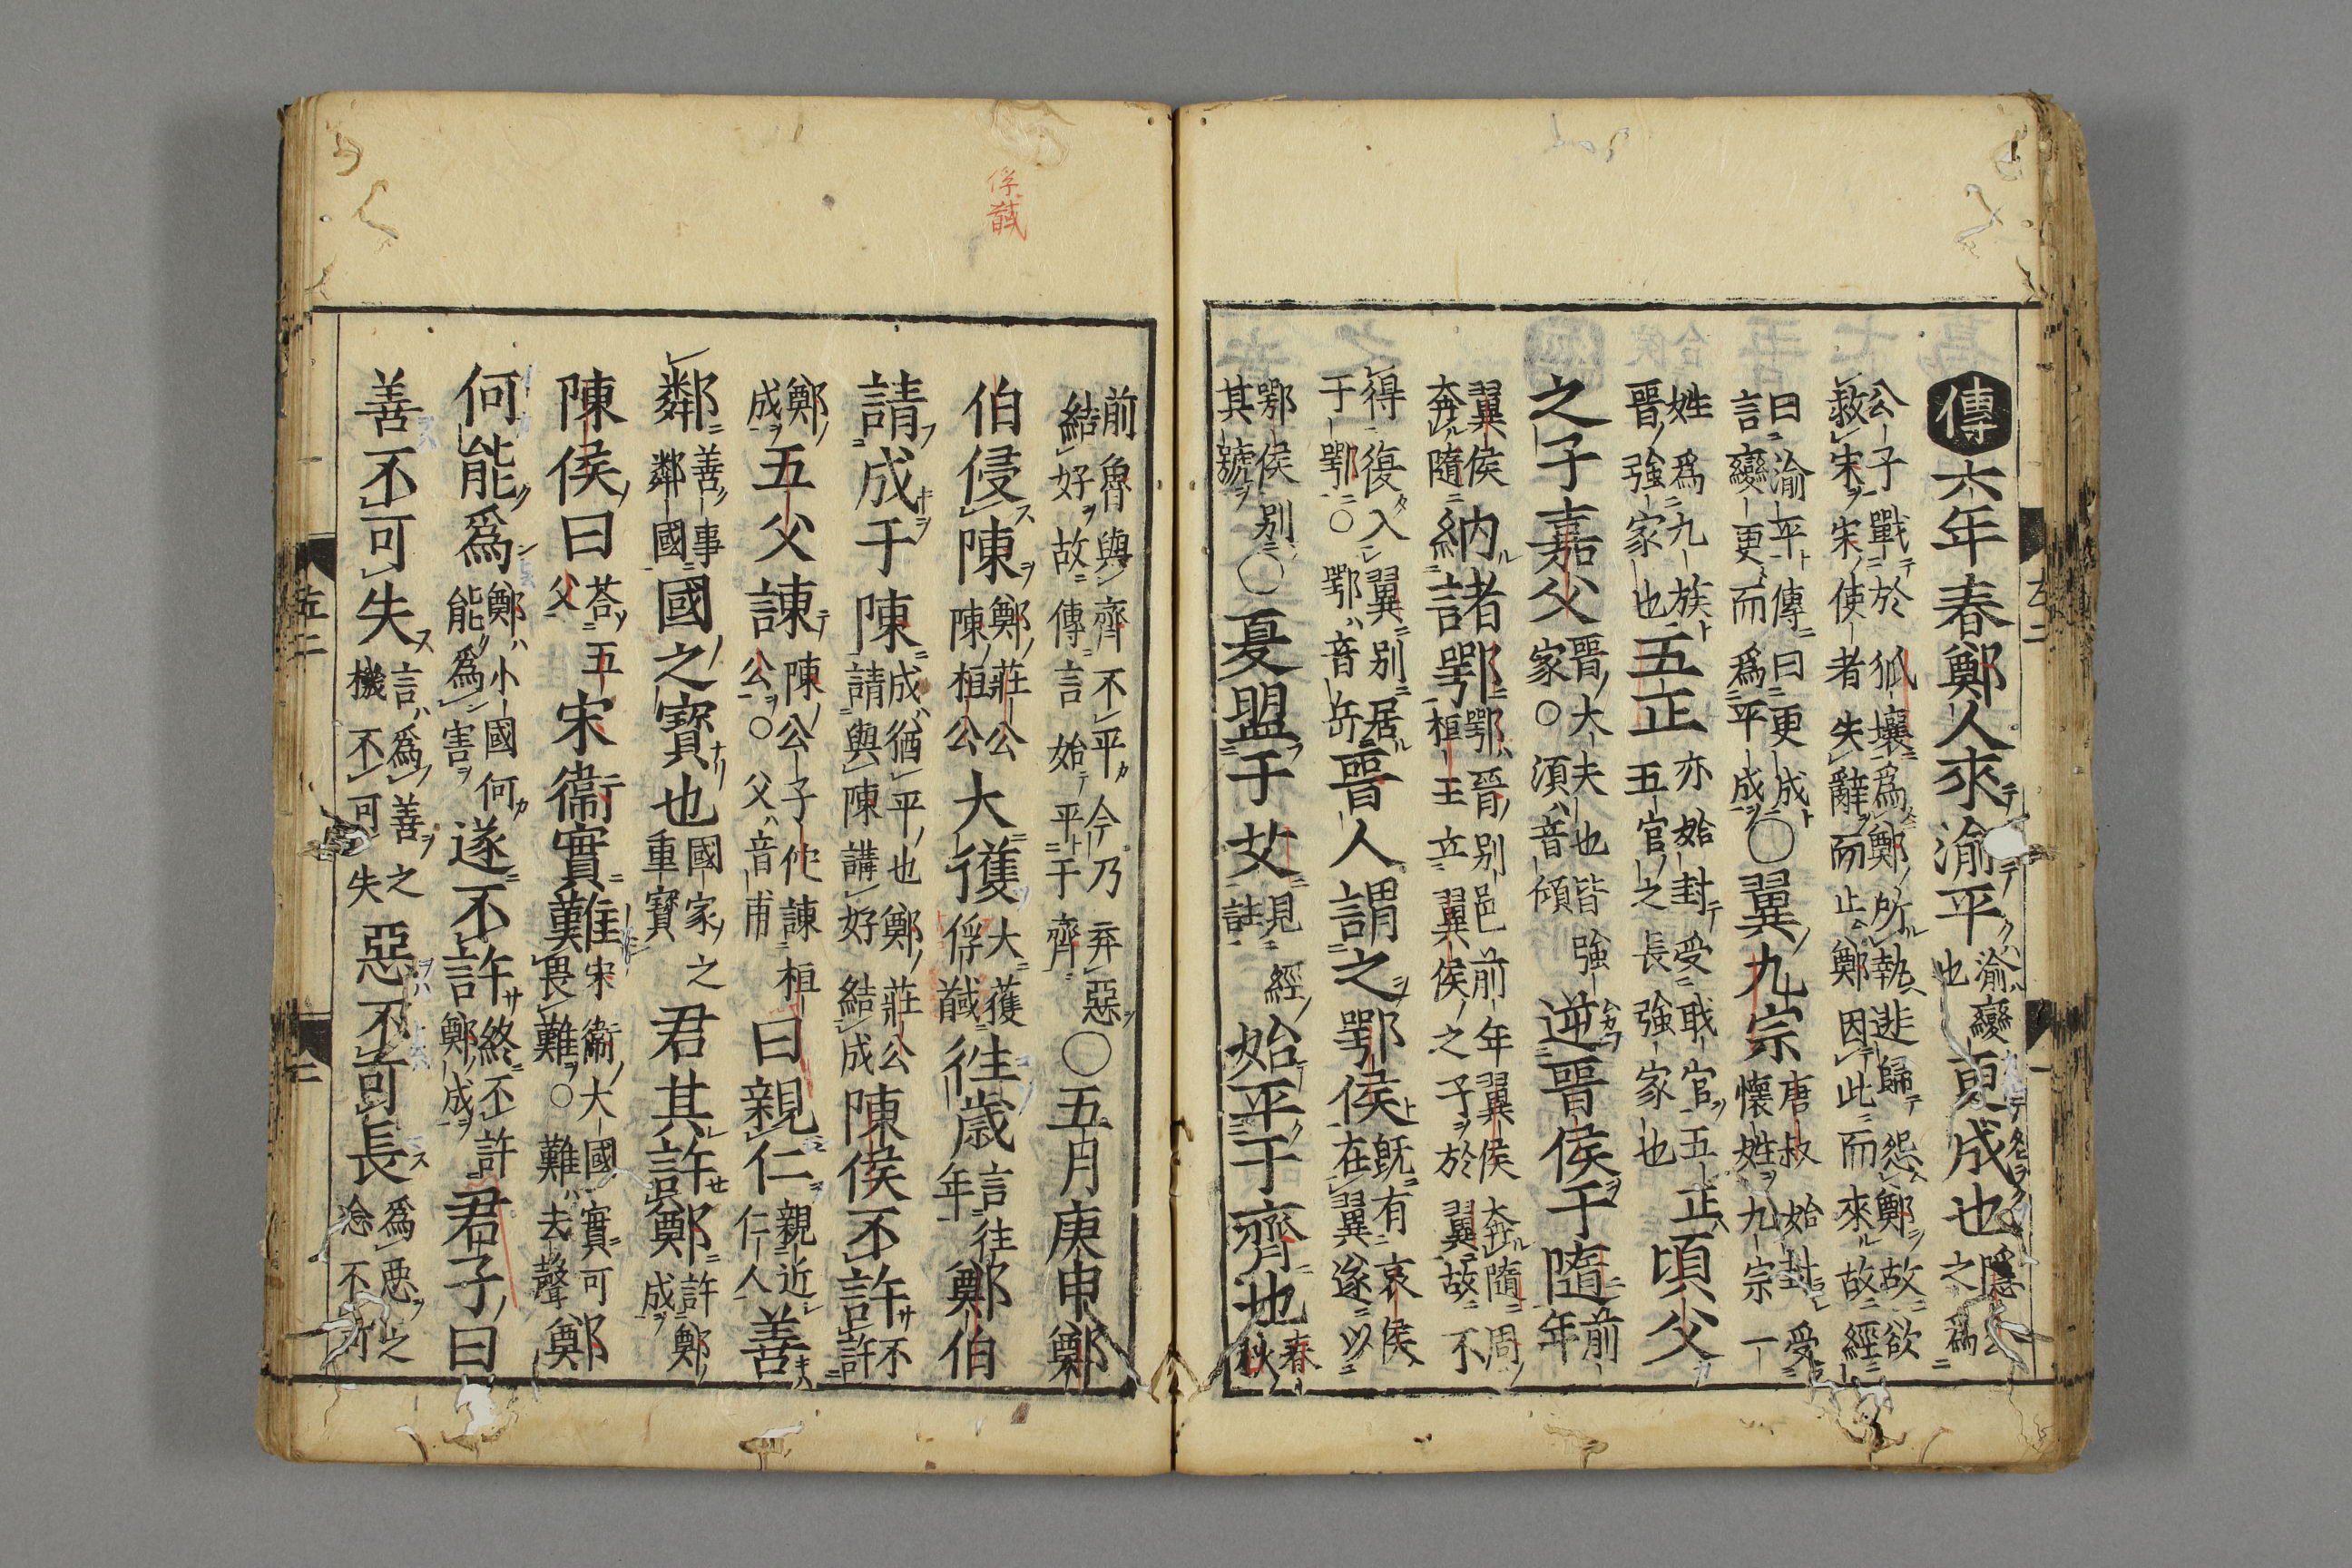 傳六年春鄭人來渝平渝變也更成也
公子戰於狐壤爲鄭所執逃歸怨鄭故欲
救宋宋使者失辭而止鄭因此而來故經
曰渝平傳曰更成○翼九宗唐叔始封受
言變更而爲平成懷姓九宗一
姓爲九族五正亦始封受職官五正頃父
晉強家也五官之長強家也
之子嘉父晉大夫也皆強家○頃音傾逆晉侯于隨前年
翼侯納諸鄂鄂晉別邑前年翼侯奔隨周
奔隨桓王立翼侯之子於翼故不
得復入翼別居晉人謂之鄂侯既有哀侯
于鄂○鄂音岳在翼遂以
鄂侯別○夏盟于艾見經始平于齊也春
其號註秋
前魯與齊不平今乃弃惡○五月庚申鄭
結好故傳言始平于齊
伯侵陳鄭莊公陳桓公大獲大獲俘馘往歲言往年鄭伯
請成于陳成猶平也鄭莊公陳侯不許不
請與陳講好結成許
鄭五父諫陳公子佗諫桓曰親仁親近善
成公○父音甫仁人
鄰善事國之寶也國家之君其許鄭許鄭
鄰國重寶成
陳侯曰荅五宋衞實難宋衞大國實可鄭
父畏難○難去聲
何能爲鄭小國何遂不許終不許君子曰
能爲害鄭成
善不可失言爲善之惡不可長爲惡之
機不可失念不可
俘馘
左二
左二
二